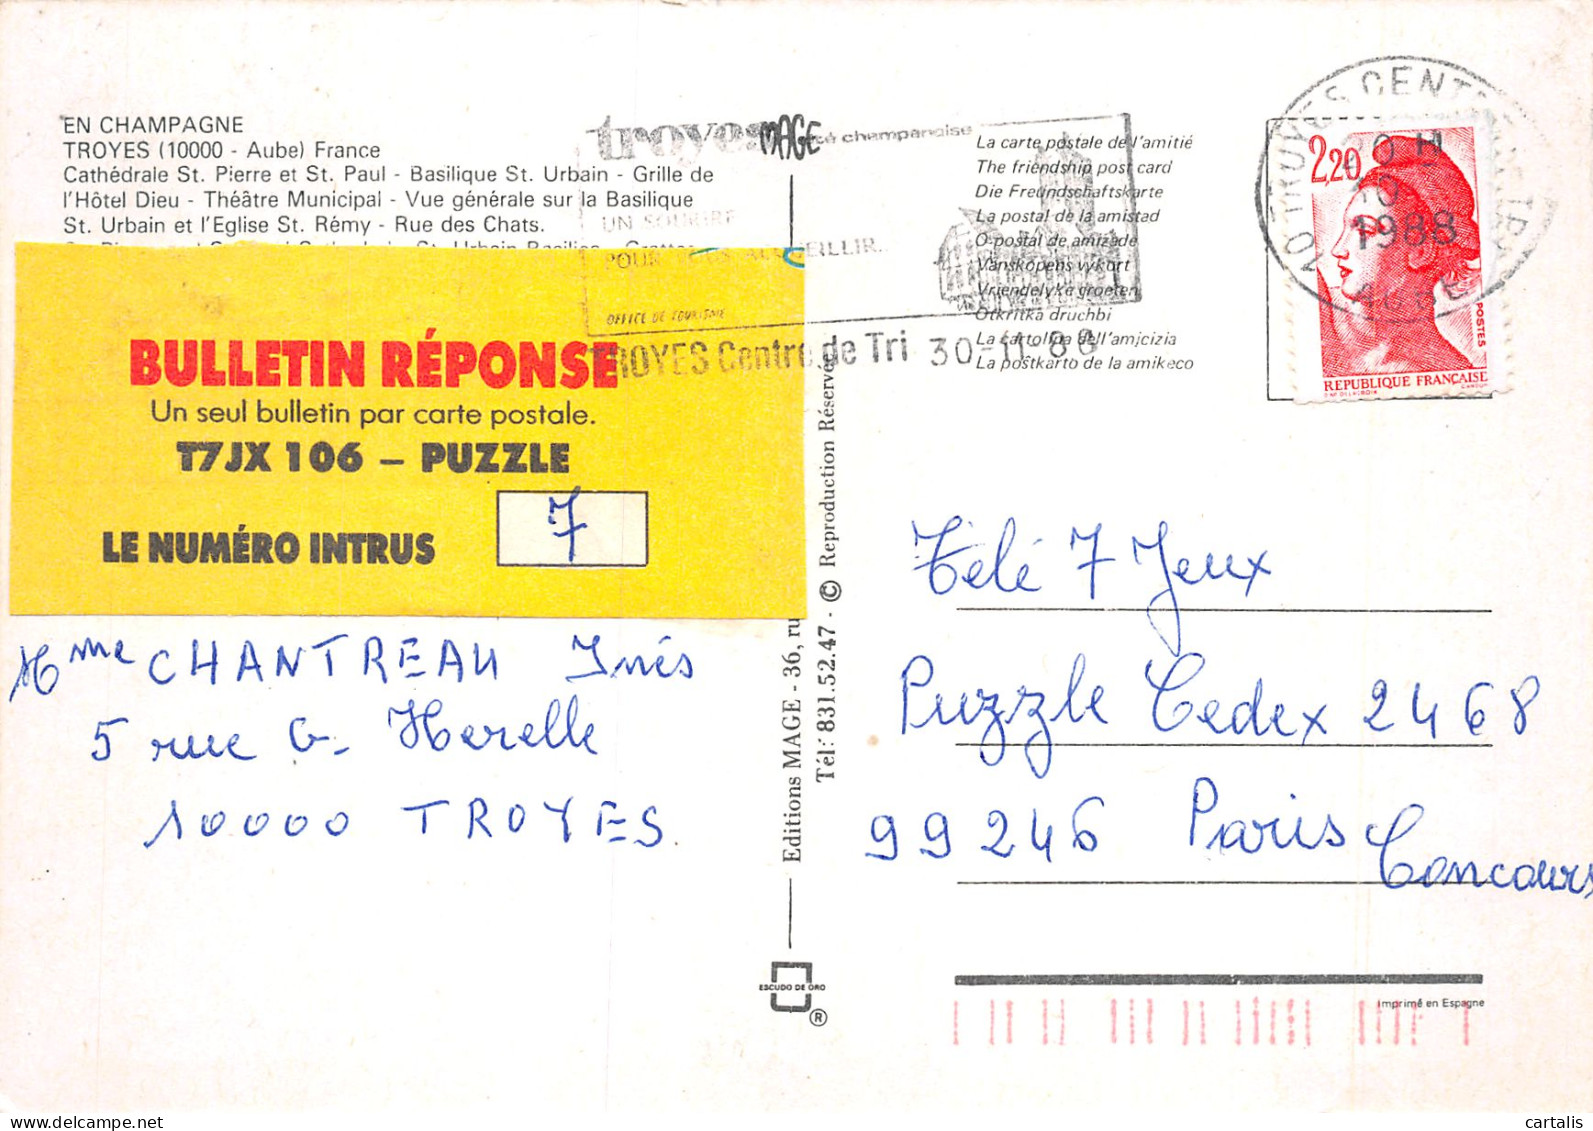 EN CHAMPAGNE
TROYES (10000 - Aube) France
Cathédrale St. Pierre et St. Paul - Basilique St. Urbain - Grille de
l'Hôtel Dieu - Théâtre Municipal - Vue générale sur la Basilique
St. Urbain et l'Eglise St. Rémy - Rue des Chats.
BULLETIN RÉPONSE
Un seul bulletin par carte postale.
T7JX 106 – PUZZLE
LE NUMÉRO INTRUS
7
Mme CHANTREAU Inés
5 rue G. Herelle
10000 TROYES
troyes
MAGE
champenoise
UN SOURIRE
POUR VOUS ACCUEILLIR..
OFFICE DE TOURISME
TROYES Centre de Tri 30-11 88
La carte postale de l'amitié
The friendship post card
Die Freundschaftskarte
La postal de la amistad
O postal de amizade
Vänskopens vykort
Vriendelyke groeten
Otkritka druchbi
La cartolina dell'amicizia
La poŝtkarto de la amikeco
10 TROYES CENTRE TRI
1988
AUBE
2,20
POSTES
REPUBLIQUE FRANÇAISE
Editions MAGE - 36, ru
Tél: 831.52.47 - © Reproduction Réservée
ESCUDO DE ORO
®
Télé 7 Jeux
Puzzle Cedex 2468
99246 Paris
Concours
Imprimé en Espagne
cartalis